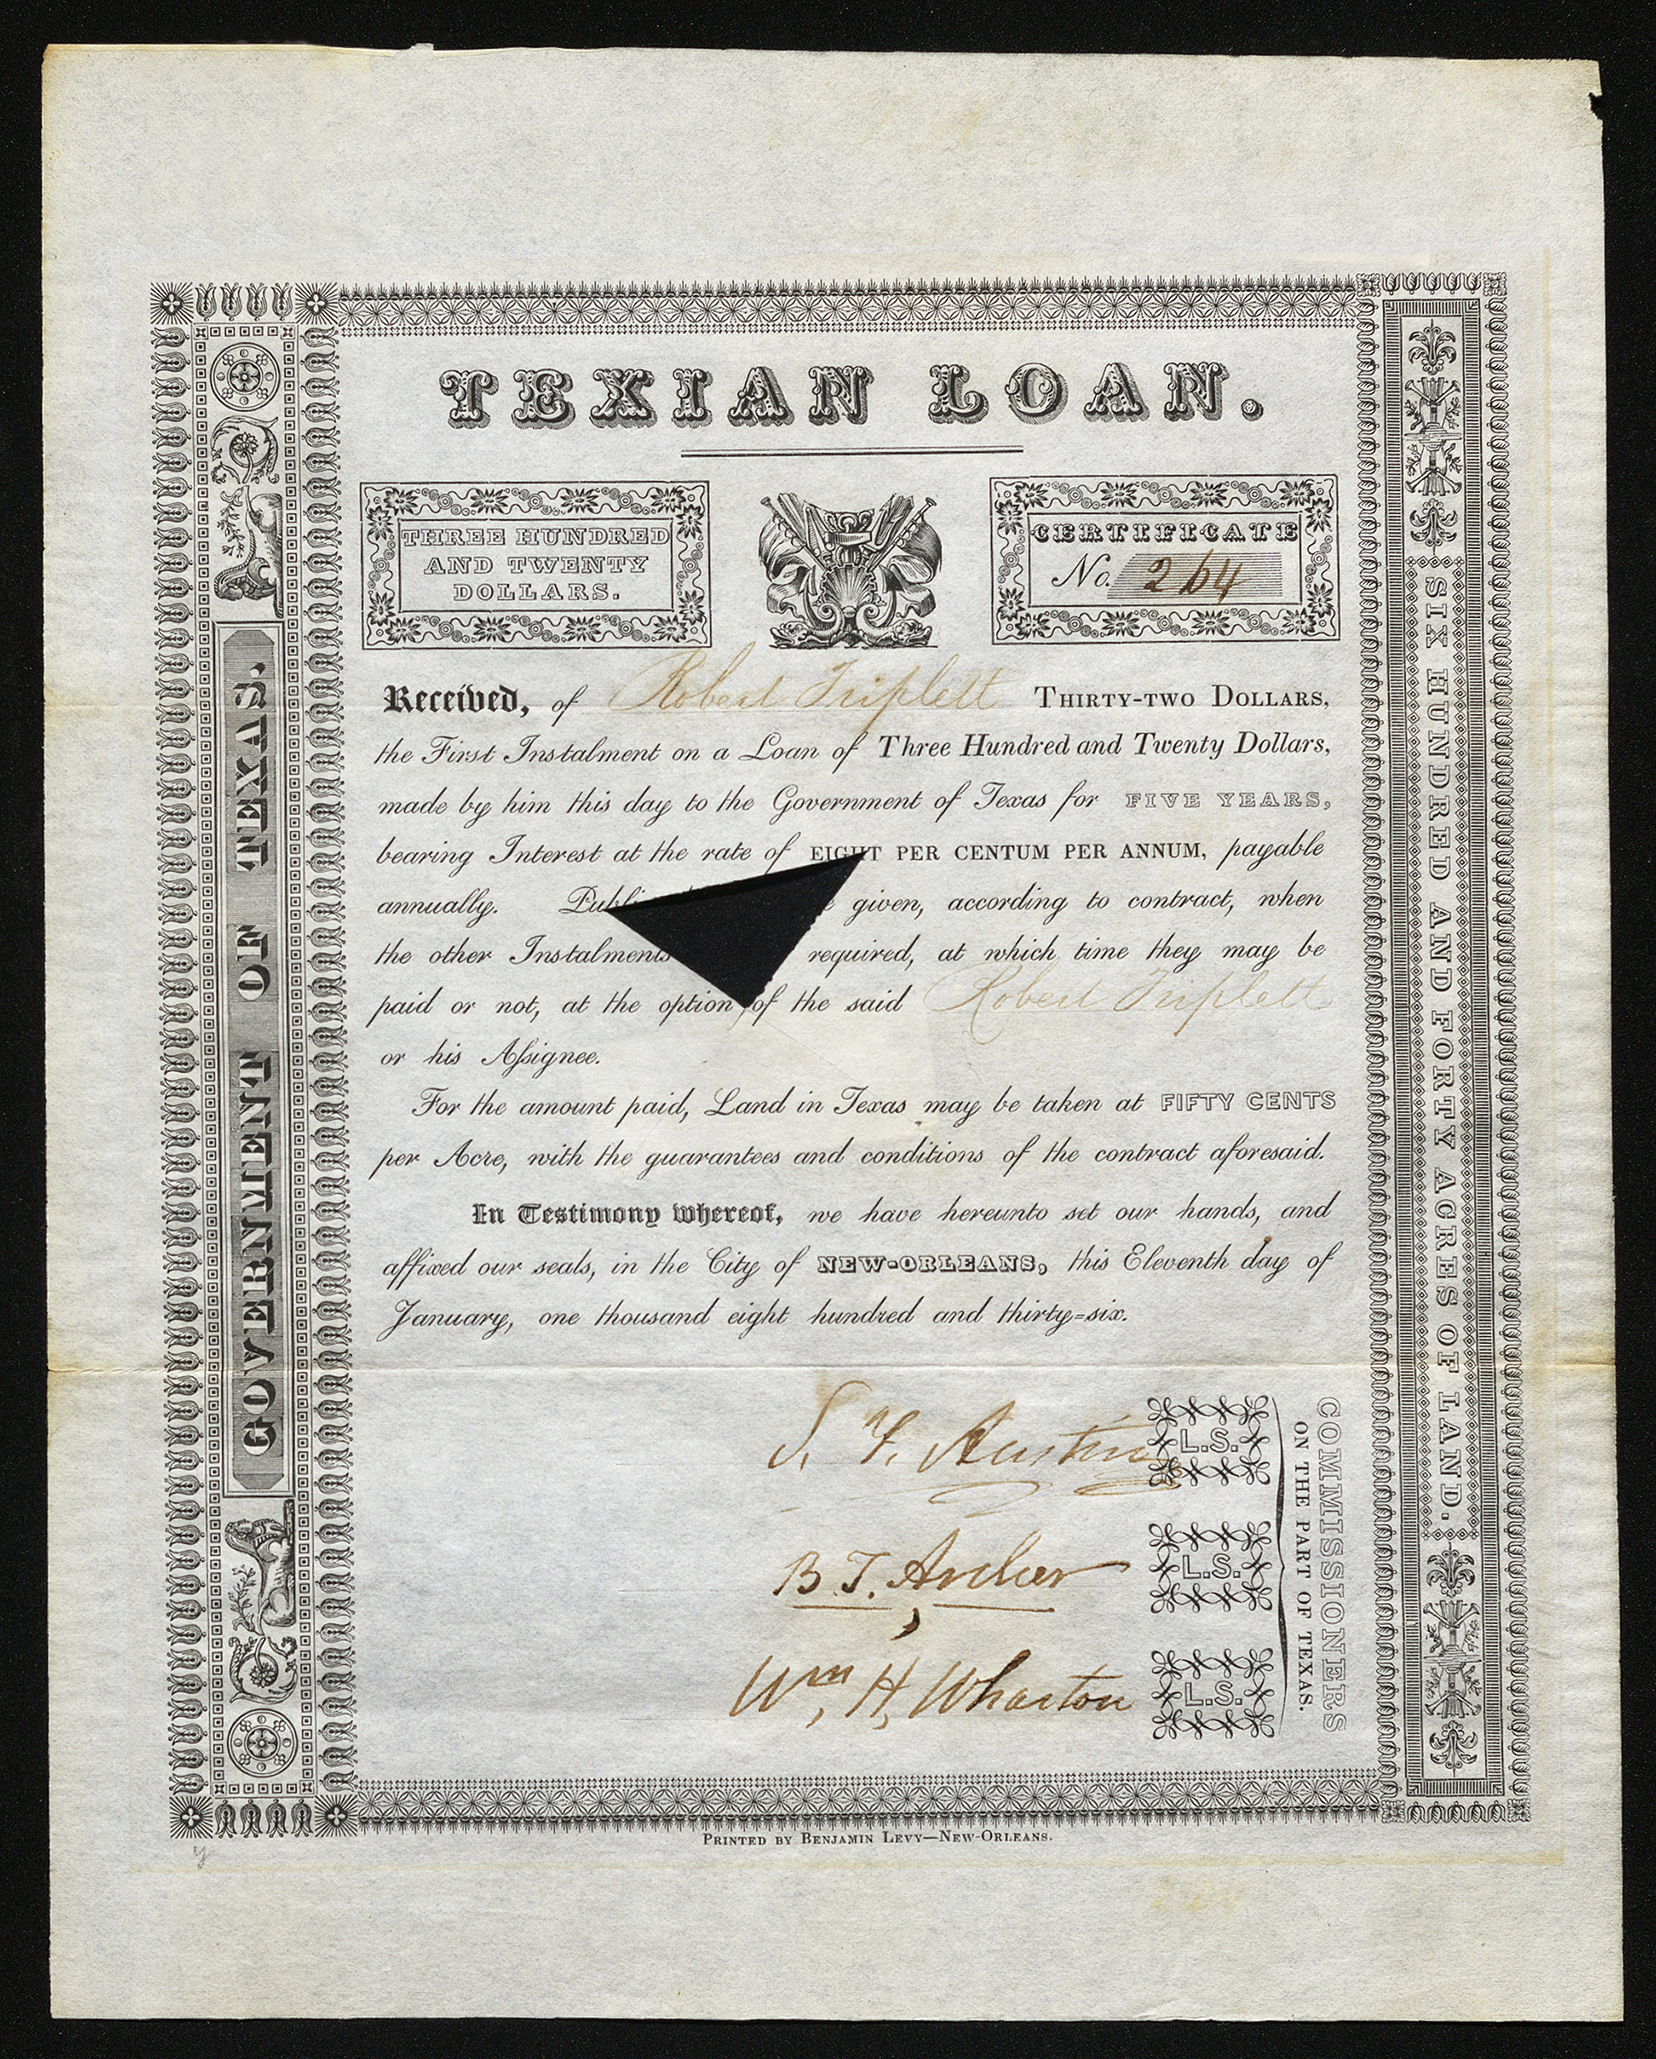 TEXIAN LOAN.
THREE HUNDRED
AND TWENTY
DOLLARS.
CERTIFICATE
No. 264
Received, of Robert Triplett THIRTY-TWO DOLLARS,
the First Instalment on a Loan of Three Hundred and Twenty Dollars,
made by him this day to the Government of Texas for FIVE YEARS,
bearing Interest at the rate of EIGHT PER CENTUM PER ANNUM, payable
annually. given, according to contract, when
the other Instalments required, at which time they may be
paid or not, at the option of the said Robert Triplett
or his Assignee.
For the amount paid, Land in Texas may be taken at FIFTY CENTS
per Acre, with the guarantees and conditions of the contract aforesaid.
In Testimony whereof, we have hereunto set our hands, and
affixed our seals, in the City of NEW-ORLEANS, this Eleventh day of
January, one thousand eight hundred and thirty=six.
S. F. Austin L.S.
B. T. Archer L.S.
Wm. H. Wharton L.S.
COMMISSIONERS
ON THE PART OF TEXAS.
GOVERNMENT OF TEXAS.
SIX HUNDRED AND FORTY ACRES OF LAND.
PRINTED BY BENJAMIN LEVY—NEW-ORLEANS.